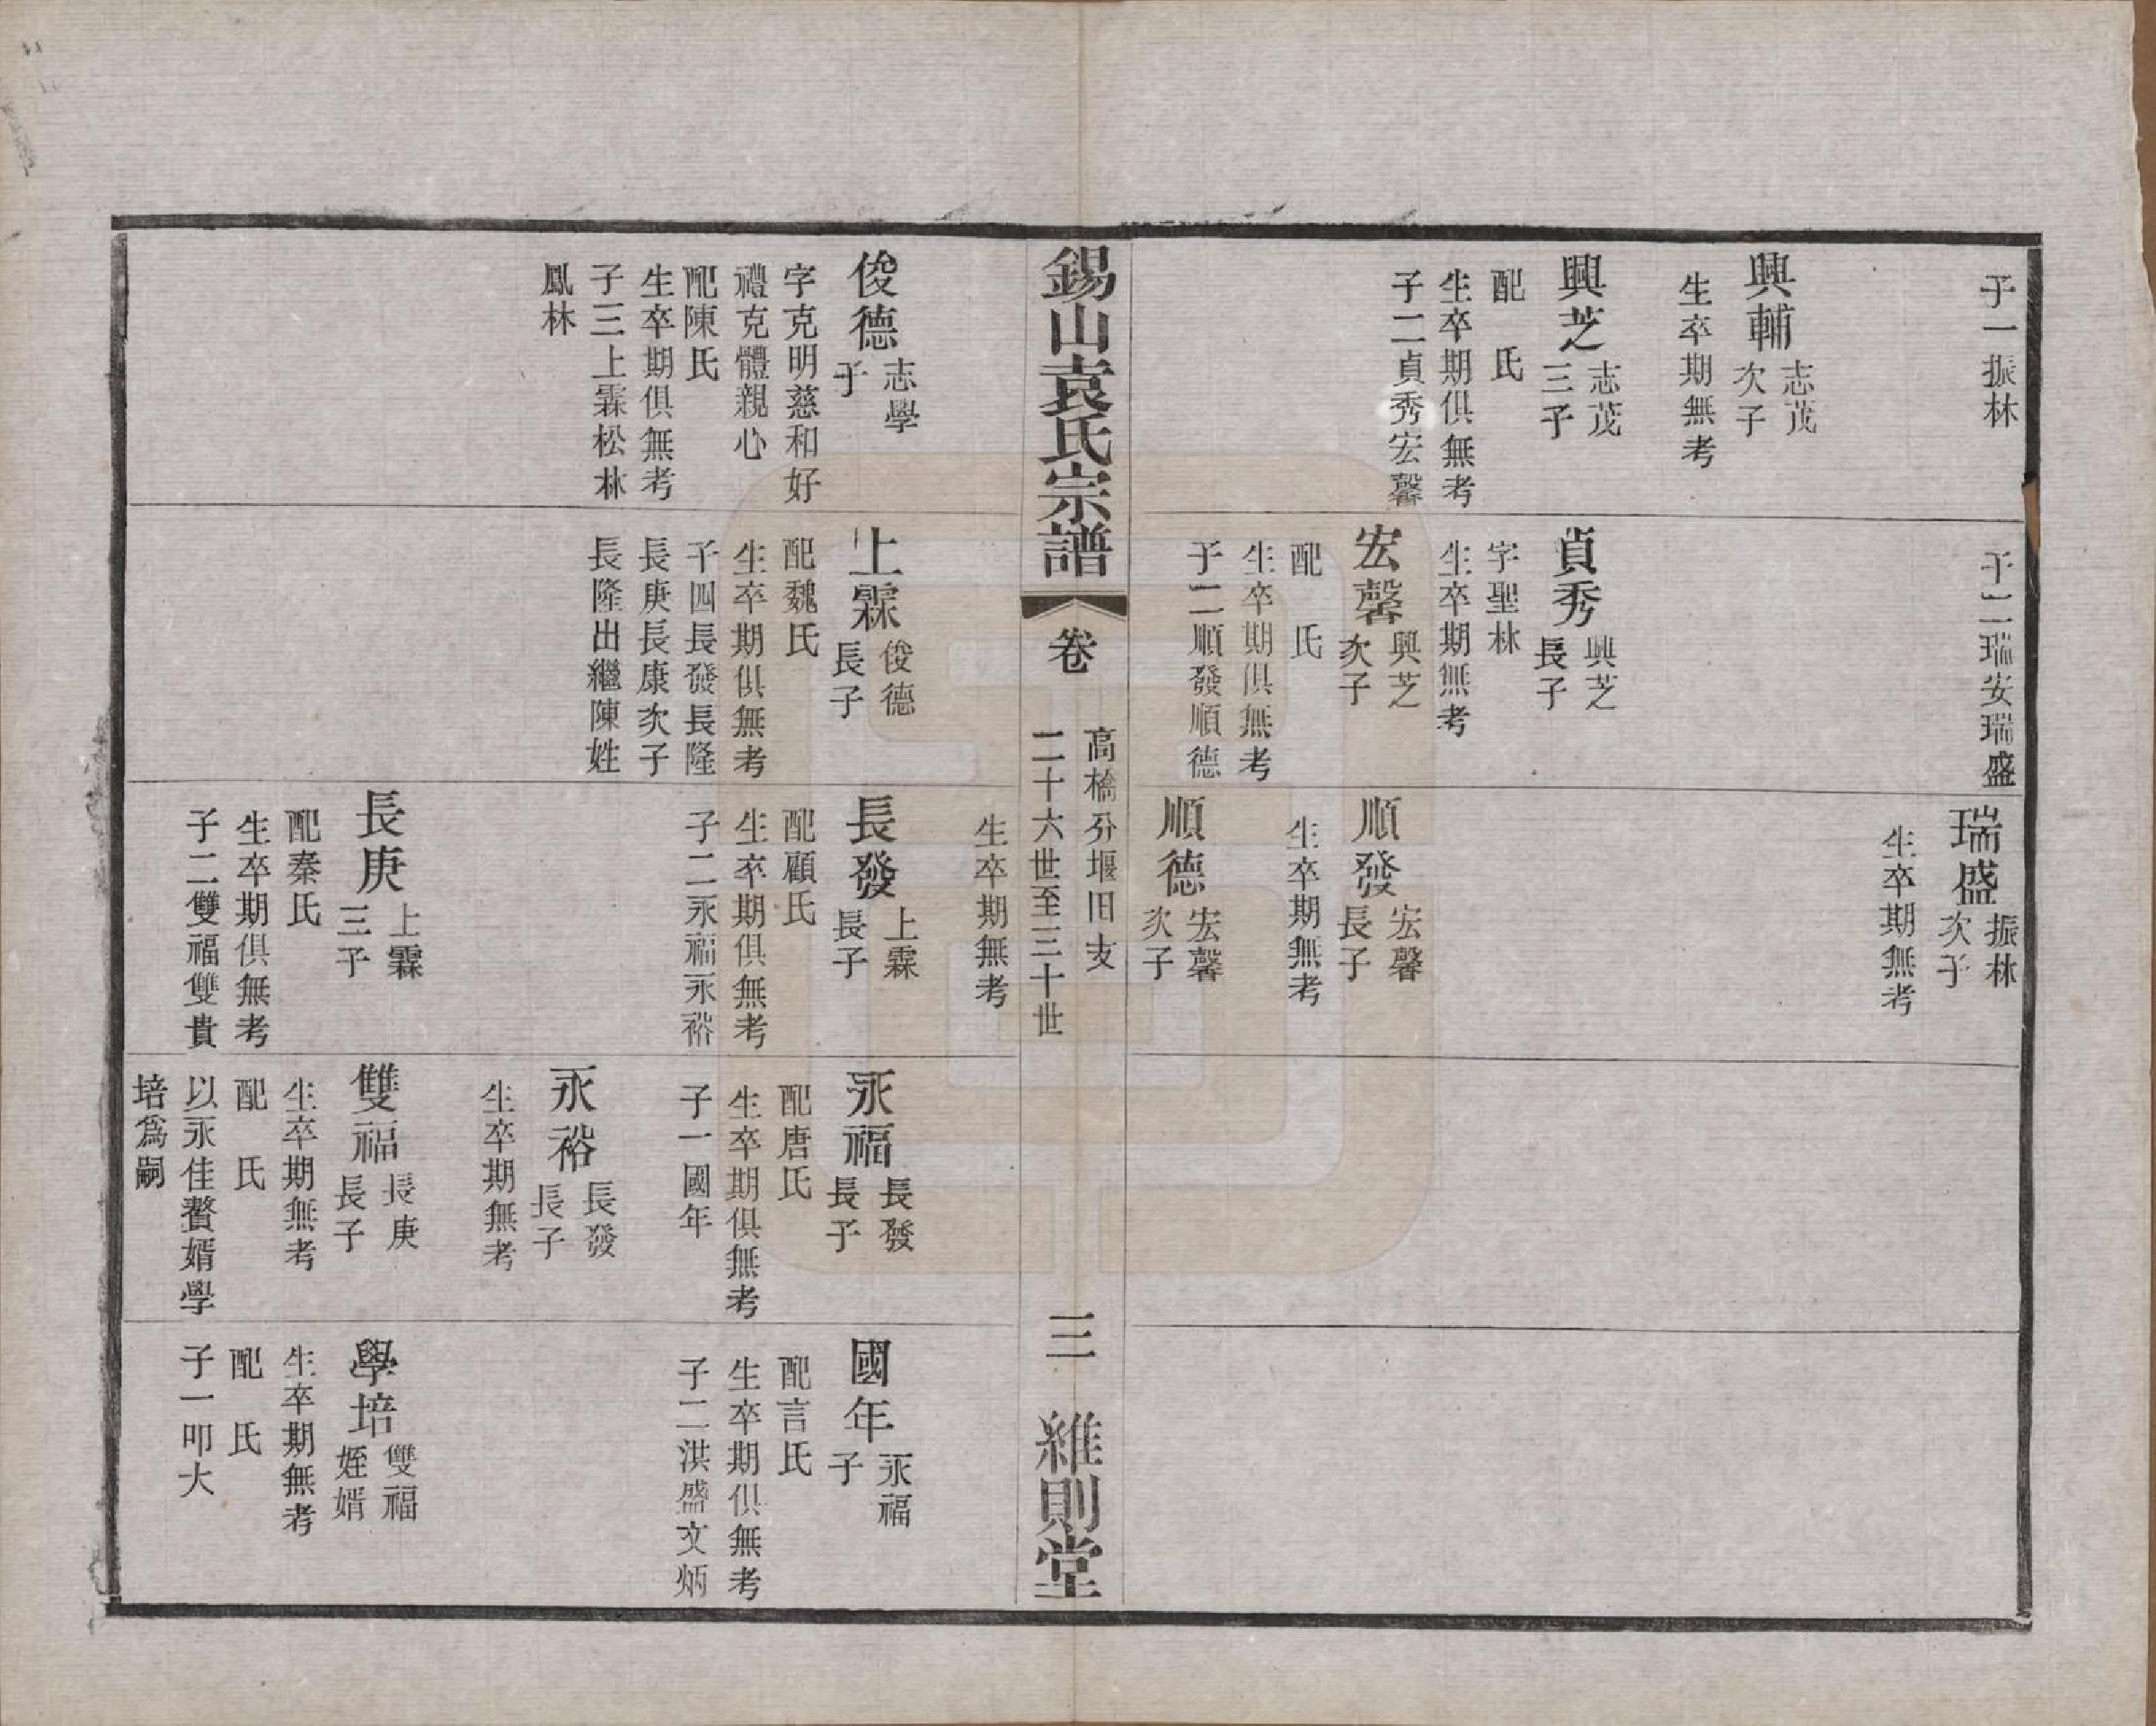 子一振林
興輔 志茂次子
生卒期無考
興芝 志茂三子
配 氏
生卒期俱無考
子二貞秀宏馨
子二瑞安瑞盛
貞秀 興芝長子
字聖林
生卒期無考
宏馨 興芝次子
配 氏
生卒期俱無考
子二順發順德
瑞盛 振林次子
生卒期無考
順發 宏馨長子
生卒期無考
順德 宏馨次子
錫山袁氏宗譜
卷
高橋分堰旧支
二十六世至三十世
三
維則堂
生卒期無考
俊德 志學子
字克明慈和好
禮克體親心
配陳氏
生卒期俱無考
子三上霖松林
鳳林
上霖 俊德長子
配魏氏
生卒期俱無考
子四長發長隆
長庚長康次子
長隆出繼陳姓
長發 上霖長子
配顧氏
生卒期俱無考
子二永福永裕
長庚 上霖三子
配秦氏
生卒期俱無考
子二雙福雙貴
永福 長發長子
配唐氏
生卒期俱無考
子一國年
永裕 長發長子
生卒期無考
雙福 長庚長子
生卒期無考
配 氏
以永佳贅婿學
培爲嗣
國年 永福子
配言氏
生卒期俱無考
子二洪盛文炳
學培 雙福姪婿
生卒期無考
配 氏
子一叩大